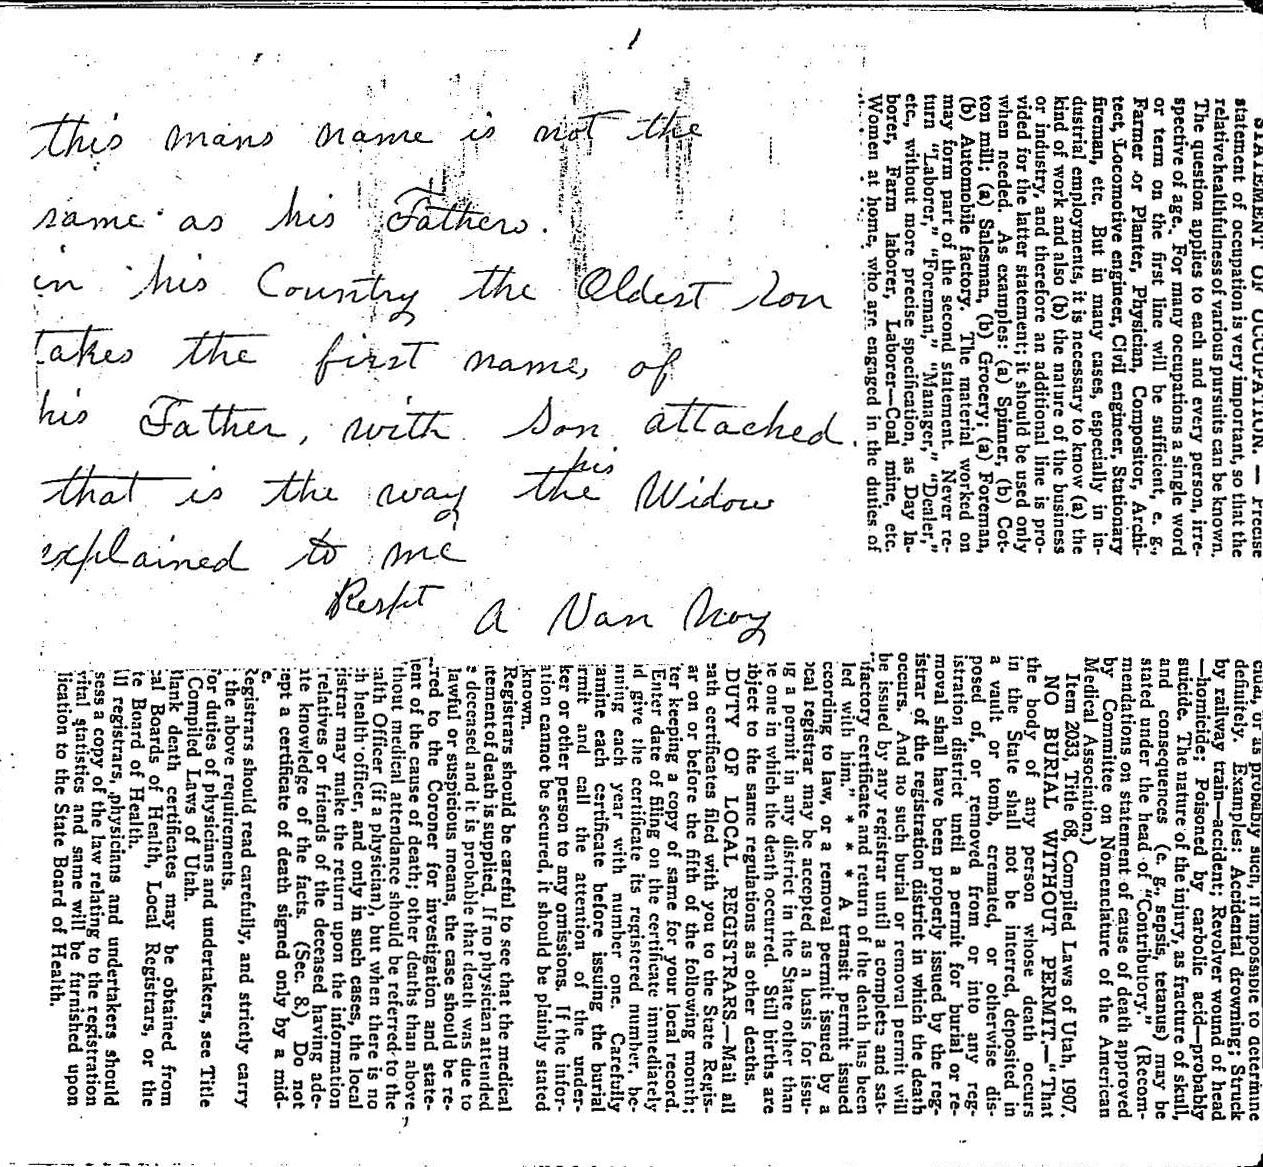 this mans name is not the
same as his Fathers.
in his Country the Oldest son
takes the first name, of
his Father, with Son attached.
his
that is the way the Widow
explained to me
Respt A Van Noy
STATEMENT OF OCCUPATION. — Precise
statement of occupation is very important, so that the
relative healthfulness of various pursuits can be known.
The question applies to each and every person, irre-
spective of age. For many occupations a single word
or term on the first line will be sufficient, e. g.,
Farmer or Planter, Physician, Compositor, Archi-
tect, Locomotive engineer, Civil engineer, Stationary
fireman, etc. But in many cases, especially in in-
dustrial employments, it is necessary to know (a) the
kind of work and also (b) the nature of the business
or industry, and therefore an additional line is pro-
vided for the latter statement; it should be used only
when needed. As examples: (a) Spinner, (b) Cot-
ton mill; (a) Salesman, (b) Grocery; (a) Foreman,
(b) Automobile factory. The material worked on
may form part of the second statement. Never re-
turn "Laborer," "Foreman," "Manager," "Dealer,"
etc., without more precise specification, as Day la-
borer, Farm laborer, Laborer—Coal mine, etc.
Women at home, who are engaged in the duties of
or as probably such, if impossible to determine
definitely. Examples: Accidental drowning; Struck
by railway train—accident; Revolver wound of head
—homicide; Poisoned by carbolic acid—probably
suicide. The nature of the injury, as fracture of skull,
and consequences (e. g., sepsis, tetanus) may be
stated under the head of "Contributory." (Recom-
mendations on statement of cause of death approved
by Committee on Nomenclature of the American
Medical Association.)
Item 2033, Title 68, Compiled Laws of Utah, 1907.
NO BURIAL WITHOUT PERMIT.—"That
the body of any person whose death occurs
in the State shall not be interred, deposited in
a vault or tomb, cremated, or otherwise dis-
posed of, or removed from or into any reg-
istration district until a permit for burial or re-
moval shall have been properly issued by the reg-
istrar of the registration district in which the death
occurs. And no such burial or removal permit will
be issued by any registrar until a complete and sat-
isfactory certificate and return of the death has been
led with him." * * * A transit permit issued
ccording to law, or a removal permit issued by a
ocal registrar may be accepted as a basis for issu-
ng a permit in any district in the State other than
he one in which the death occurred. Still births are
bject to the same regulations as other deaths.
DUTY OF LOCAL REGISTRARS.—Mail all
eath certificates filed with you to the State Regis-
ar on or before the fifth of the following month;
ter keeping a copy of same for your local record.
Enter date of filing on the certificate immediately
d give the certificate its registered number, be-
nning each year with number one. Carefully
amine each certificate before issuing the burial
rmit and call the attention of the under-
ker or other person to any omissions. If the infor-
ation cannot be secured, it should be plainly stated
known.
Registrars should be careful to see that the medical
tement of death is supplied. If no physician attended
e deceased and it is probable that death was due to
lawful or suspicious means, the case should be re-
rred to the Coroner for investigation and state-
ent of the cause of death; other deaths than above
thout medical attendance should be referred to the
alth Officer (if a physician), but when there is no
ch health officer, and only in such cases, the local
istrar may make the return upon the information
relatives or friends of the deceased having ade-
te knowledge of the facts. (Sec. 8.) Do not
ept a certificate of death signed only by a mid-
e.
Registrars should read carefully, and strictly carry
the above requirements.
For duties of physicians and undertakers, see Title
Compiled Laws of Utah.
Blank death certificates may be obtained from
al Boards of Health, Local Registrars, or the
te Board of Health.
ll registrars, physicians and undertakers should
sess a copy of the law relating to the registration
vital statistics and same will be furnished upon
lication to the State Board of Health.